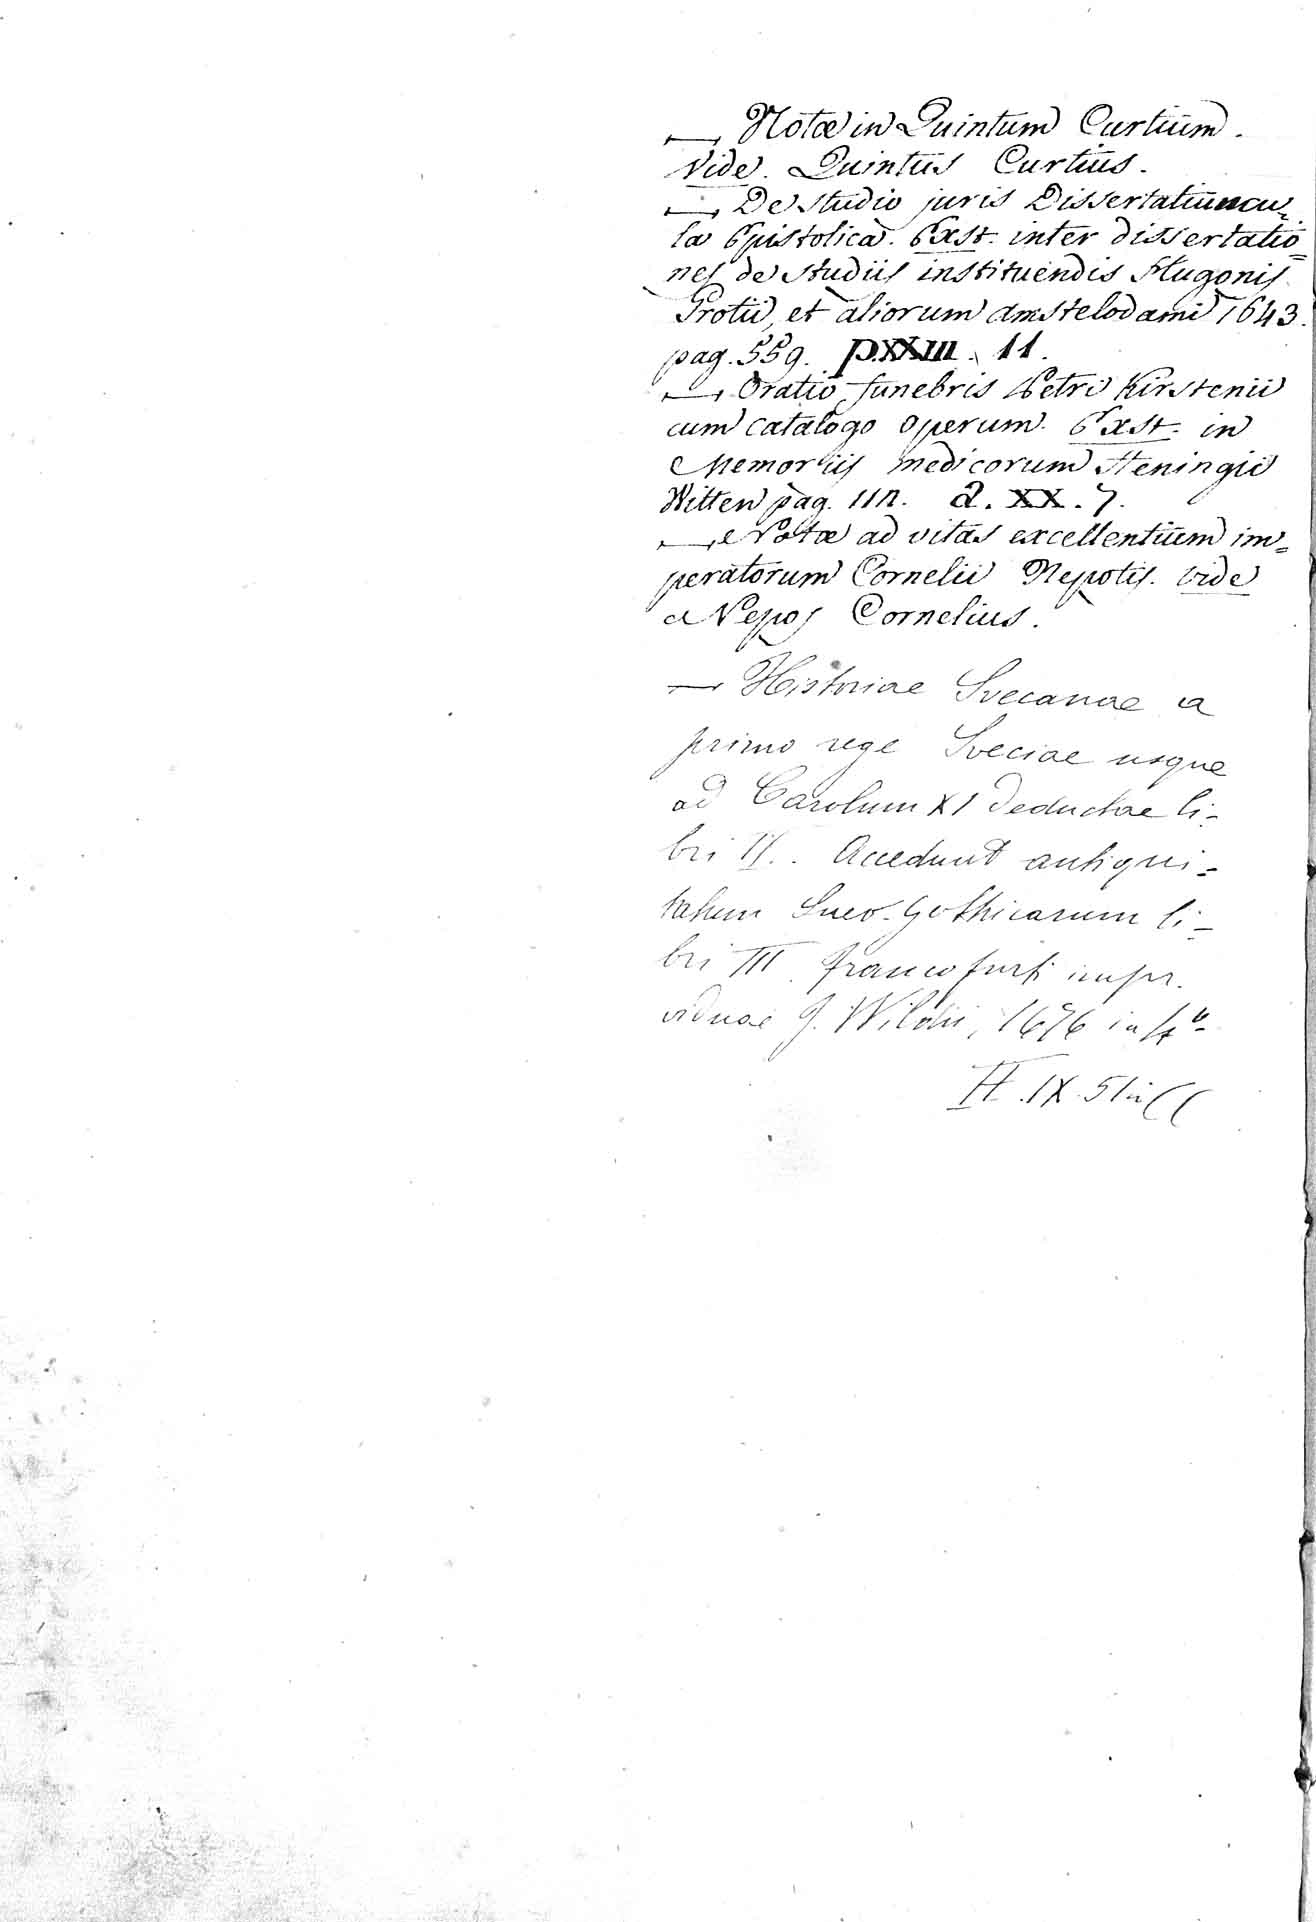 — Notæ in Quintum Curtium.
Vide. Quintus Curtius.
— De studio juris Dissertatiuncu=
la Epistolica. Exst. inter dissertatio=
nes de studiis instituendis Hugonis
Grotii, et aliorum Amstelodami 1643.
pag. 559. P.XXIII. 11.
— Oratio funebris Petri Kirstenii
cum catalogo operum. Exst. in
Memoriis medicorum Heningii
Witten pag. 112. a. XX. 7.
— Notæ ad vitas excellentium im=
peratorum Cornelii Nepotis. vide
Nepos Cornelius.
— Historiae Svecanae a
primo rege Sveciae usque
ad Carolum XI deductae li=
bri II. Accedunt antiqui=
tatum Sueo-Gothicarum li=
bri III. Francofurti impr.
viduae J. Wildii, 1676 in 4º
H. IX. 5